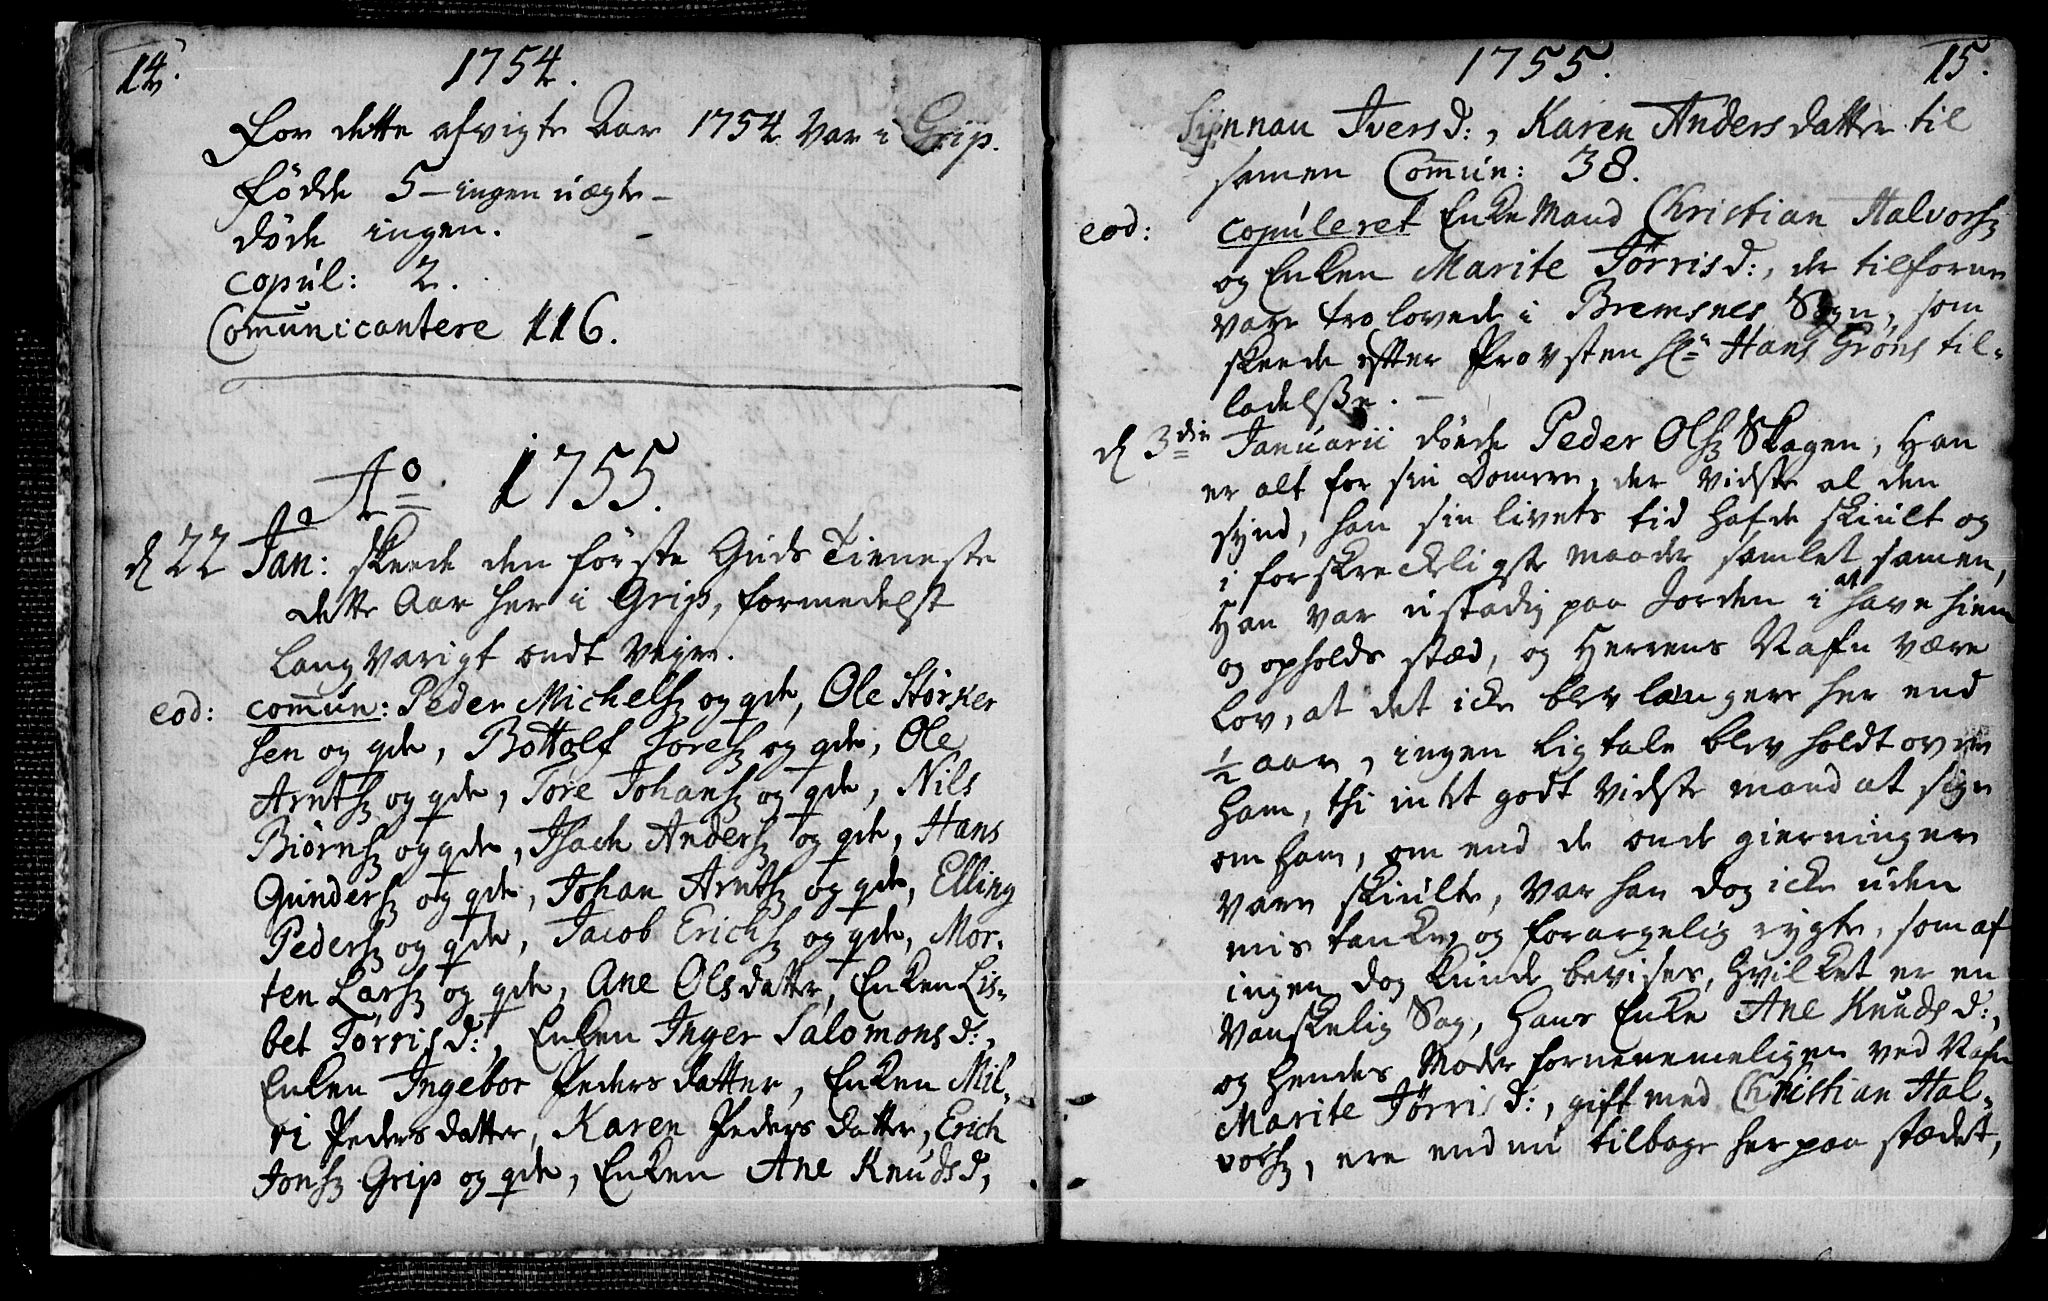 14.
1754.
For dette afvigte Aar 1754 var i Grip.
fødde 5 – ingen uægte –
døde ingen.
copúl: 2.
Com̅unicantere 116.
Ao. 1755.
d 22 Jan: skeede den første Guds Tieneste
dette Aar her i Grip, formedelst
langvarigt ondt Vejr.
eod: com̅un: Peder Michels. og qde, Ole Størker
sen og qde, Bottolf Tores. og qde, Ole
Arnts. og qde, Tore Johans. og qde, Nils
Biørns. og qde, Isach Anders. og qde, Hans
Gunders. og qde, Johan Arnts. og qde, Elling
Peders. og qde, Jacob Erichs. og qde, Mor-
ten Lars. og qde, Ane Olsdatter, Enken Lis-
bet Tørrisd:, Enken Inger Salomonsd:,
Enken Ingebor Pedersdatter, Enken Mil-
ri Pedersdatter, Karen Pedersdatter, Erich
Jons. Grip og qde, Enken Ane Knudsd,
1755.
15.
Synnau Iversd:, Karen Andersdatter til
samen Com̅un: 38.
eod: copúleret EnkeMand Christian Halvors.
og Enken Marite Tørrisd:, de tilforne
vare trolovede i Bremsnes Sogn, som
skeede efter Provsten Hr Hans Grøns til-
ladelsse. –
d 3die Januarii døede Peder Ols. Skagen, Han
er alt for sin Domere, der vidste al den
synd, han sin livets tid hafde skiult og
i forskreckeligste maade samlet samen,
Han var ustadig paa Jorden i at have hiem
og opholds stæd, og Herrens Nafn være
lov, at det icke blev længere her end
½ aar, ingen ligtale blev holdt over
ham, thi intet godt vidste mand at sige
om ham, om end de onde gierninger
vare skiulte, var han dog icke uden
mistanke, og forargelig rygte, som af
ingen dog kunde bevises, hvilket er en
vanskelig Sag, hans Enke Ane Knudsd:,
og hendes Moder fornemmeligen ved Nafn
Marite Tørrisd:, gift med Christian Hal-
vors., ere endnu tilbage her paa stædet,